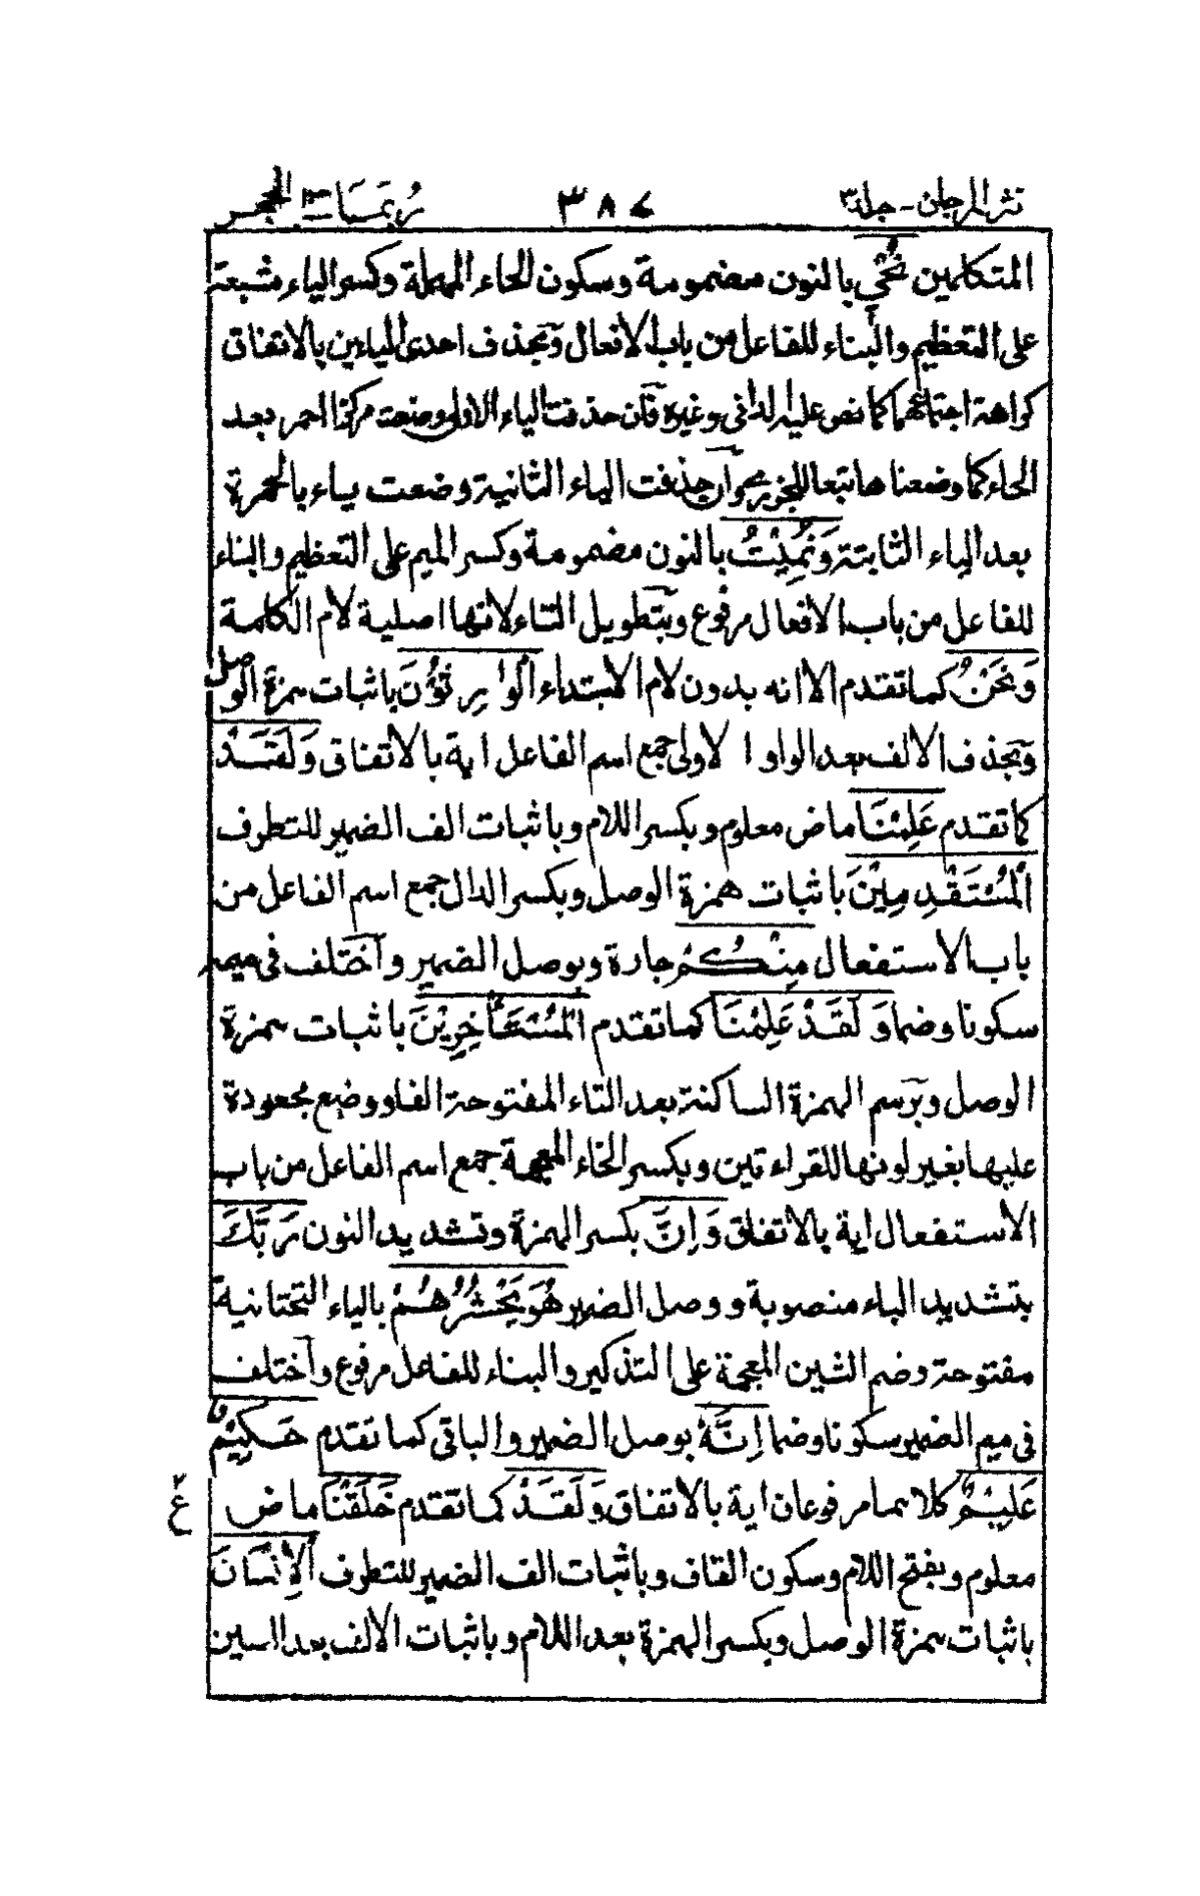 نثر المرجان - جلد ٣ ٣٨٧ رُبَمَا الحجر
المتكلمين نُحْيِ بالنون مضمومة وسكون الحاء المهملة وكسر الياء مشبعة
على التعظيم والبناء للفاعل من باب الافعال وبحذف احدى اليائين بالاتفاق
كراهة اجتماعهما كما نص عليه الدانى وغيره فان حذفت الياء الاولى وضعت مركز الحمر بعد
الحاء كما وضعنا هاتبعا للجزرى وان حذفت الياء الثانية وضعت ياء بالحمرة
بعد الياء الثابتة وَنُمِيْتُ بالنون مضمومة وكسر الميم على التعظيم والبناء
للفاعل من باب الافعال مرفوع وبتطويل التاء لانها اصلية لام الكلمة
وَنَحْنُ كما تقدم الا انه بدون لام الابتداء الْوٰرِثُوْنَ باثبات همزة الوصل
وبحذف الالف بعد الواو الاولى جمع اسم الفاعل اية بالاتفاق وَلَقَدْ
كما تقدم عَلِمْنَا ماض معلوم وبكسر اللام وباثبات الف الضمير للتطرف
الْمُسْتَقْدِمِيْنَ باثبات همزة الوصل وبكسر الدال جمع اسم الفاعل من
باب الاستفعال مِنْكُمْ جارة وبوصل الضمير واختلف فى ميمه
سكونا وضما وَلَقَدْ عَلِمْنَا كما تقدم الْمُسْتَأْخِرِيْنَ باثبات همزة
الوصل وبرسم الهمزة الساكنة بعد التاء المفتوحة الفا ووضع مجعودة
عليها بغير لونها للقراءتين وبكسر الخاء المعجمة جمع اسم الفاعل من باب
الاستفعال اية بالاتفاق وَاِنَّ بكسر الهمزة وتشديد النون رَبَّكَ
بتشديد الباء منصوبة ووصل الضمير هُوَ يَحْشُرُهُمْ بالياء التحتانية
مفتوحة وضم الشين المعجمة على التذكير والبناء للفاعل مرفوع واختلف
فى ميم الضمير سكونا وضما اِنَّهٗ بوصل الضمير والباقى كما تقدم حَكِيْمٌ
عَلِيْمٌ كلاهما مرفوعان اية بالاتفاق وَلَقَدْ كما تقدم خَلَقْنَا ماض
ع
معلوم وبفتح اللام وسكون القاف وباثبات الف الضمير للتطرف الْاِنْسَانَ
باثبات همزة الوصل وبكسر الهمزة بعد اللام وباثبات الالف بعد السين